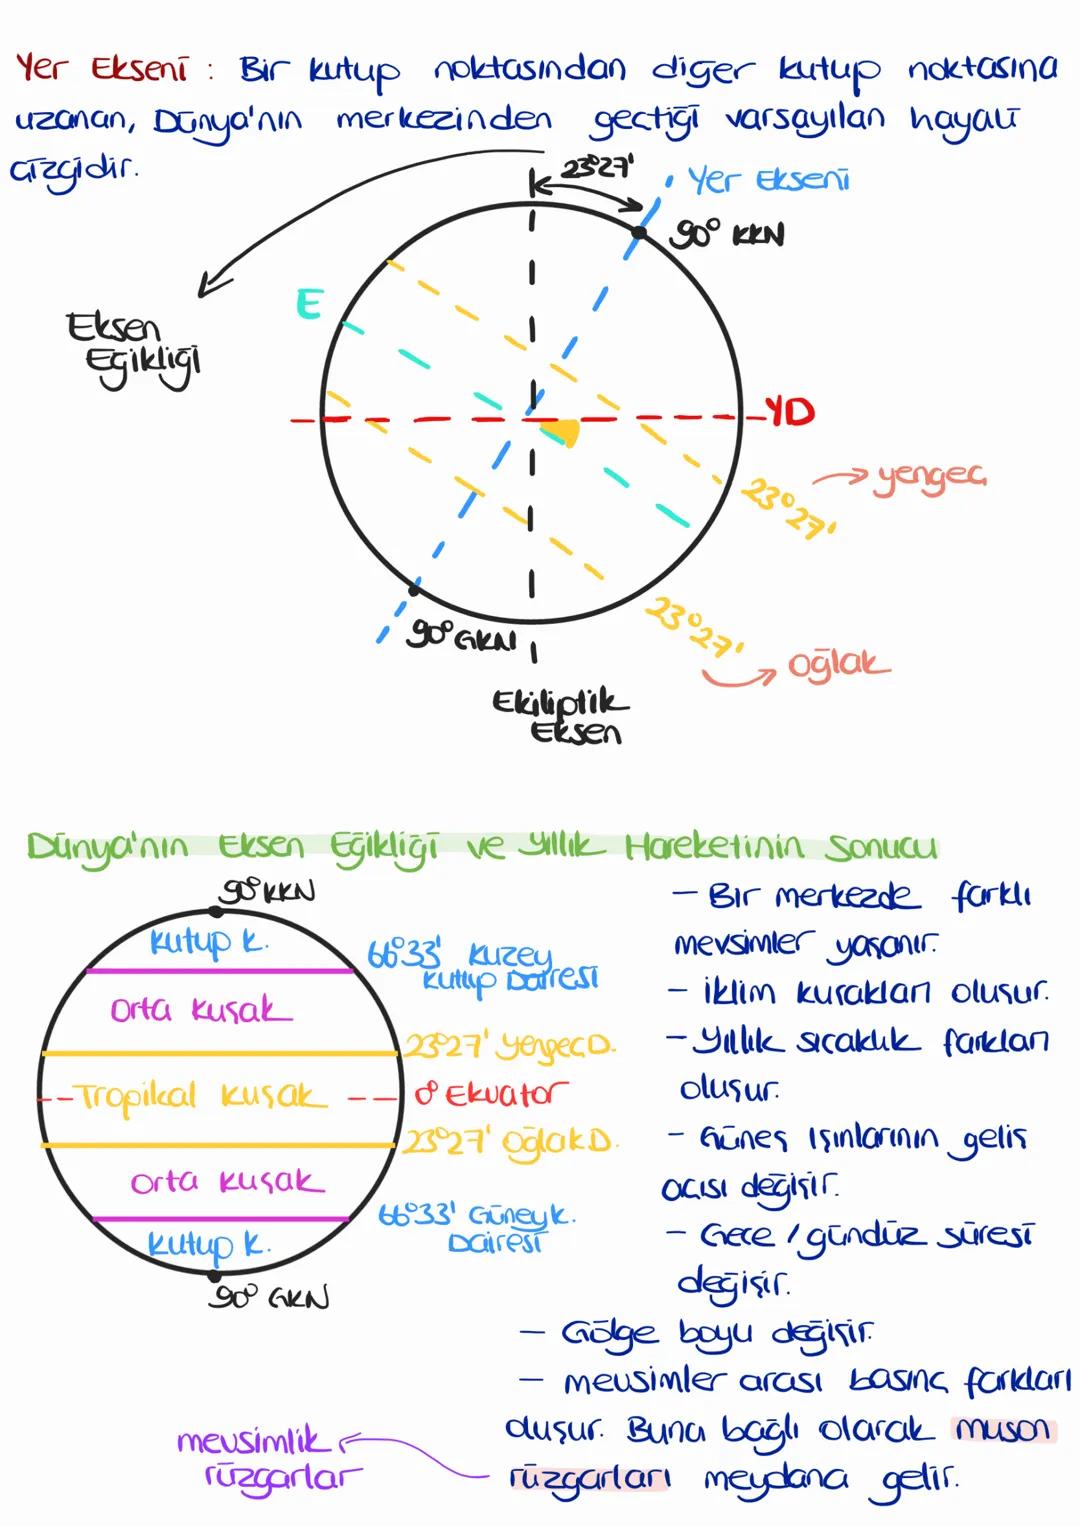 Yer Ekseni : Bir kutup noktasından diğer kutup noktasına
uzanan, Dünya'nın merkezinden geçtiği varsayılan hayali
çizgidir.
23°27'
Yer Ekseni
90° KKN
E
Eksen
Eğikliği
YD
yengeç
23°27'
23°27'
oğlak
90° GKN
Ekiliptik
Eksen
Dünya'nın Eksen Eğikliği ve Yıllık Hareketinin Sonucu
90° KKN
Kutup k.
66°33' Kuzey
Kutup Dairesi
Orta kuşak
23°27' Yengeç D.
Tropikal kuşak
0° Ekvator
23°27' Oğlak D.
Orta kuşak
66°33' Güney k.
Dairesi
Kutup k.
90° GKN
- Bir merkezde farklı
mevsimler yaşanır.
- İklim kuşakları oluşur.
- Yıllık sıcaklık farkları
oluşur.
- Güneş ışınlarının geliş
açısı değişir.
- Gece / gündüz süresi
değişir.
- Gölge boyu değişir.
- mevsimler arası basınç farkları
oluşur. Buna bağlı olarak muson
rüzgarları meydana gelir.
mevsimlik
rüzgarlar